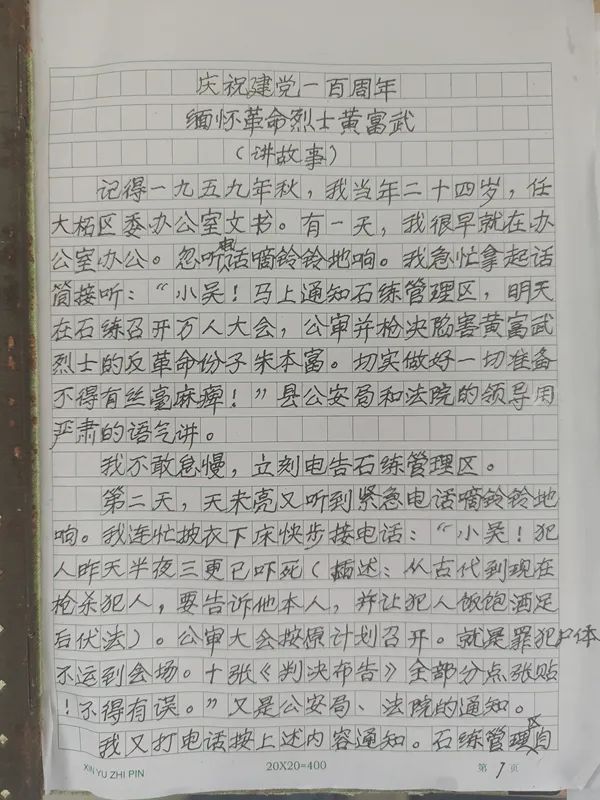 庆祝建党一百周年
缅怀革命烈士黄富武
（讲故事）
记得一九五九年秋，我当年二十四岁，任
大柘区委办公室文书。有一天，我很早就在办
公室办公。忽听电话嘀铃铃地响。我急忙拿起话
筒接听：“小吴！马上通知石练管理区，明天
在石练召开万人大会，公审并枪决陷害黄富武
烈士的反革命份子朱本富。切实做好一切准备
不得有丝毫麻痹！”县公安局和法院的领导用
严肃的语气讲。
我不敢怠慢，立刻电告石练管理区。
第二天，天未亮又听到紧急电话嘀铃铃地
响。我连忙披衣下床快步接电话：“小吴！犯
人昨天半夜三更已吓死（插述：从古代到现在
枪杀犯人，要告诉他本人，并让犯人饭饱酒足
后伏法）。公审大会按原计划召开。就是罪犯尸体
不运到会场。十张《判决布告》全部分点张贴
！不得有误。”又是公安局、法院的通知。
我又打电话按上述内容通知。石练管理区自
XIN YU ZHI PIN 20X20=400 第1页